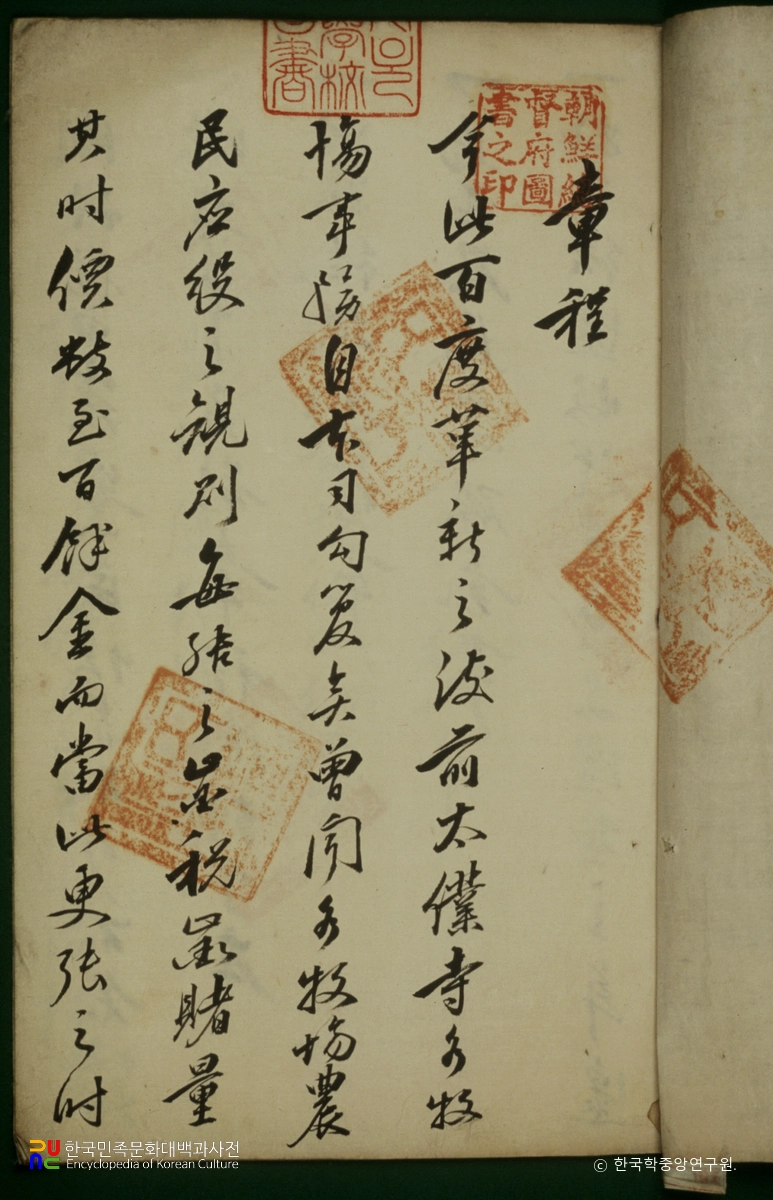 朝鮮總
督府圖
書之印
學校
書
章程
今此百度革新之後前太僕寺各牧
場事務自本司句管矣曾聞各牧場農
民应役之規則每結之税賭量
其时價数至百餘金而當此更張之时
한국민족문화대백과사전
Encyclopedia of Korean Culture
© 한국학중앙연구원.